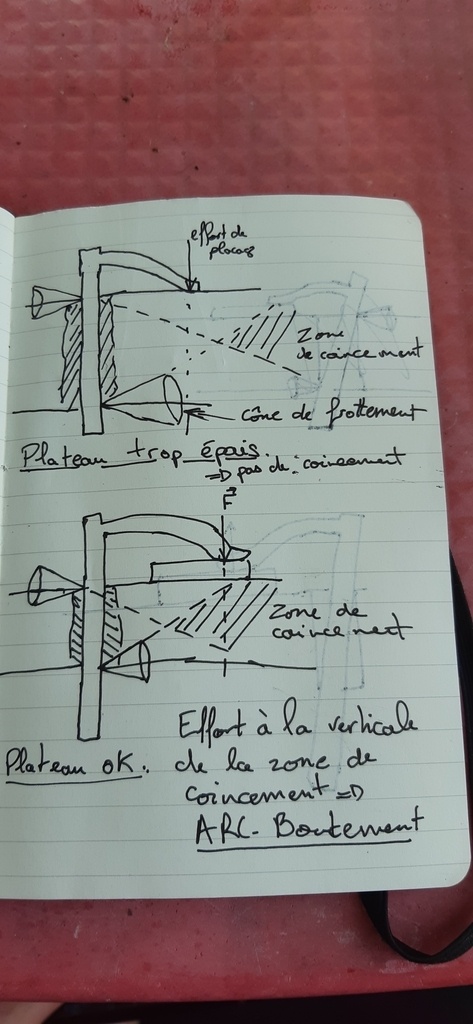 effort de
placag
Zone
de coincement
cône de frottement
Plateau trop épais.
=D pas de coincement
F
Zone de
coincement
Effort à la verticale
Plateau OK. de la zone de
coincement =D
ARC-Boutement